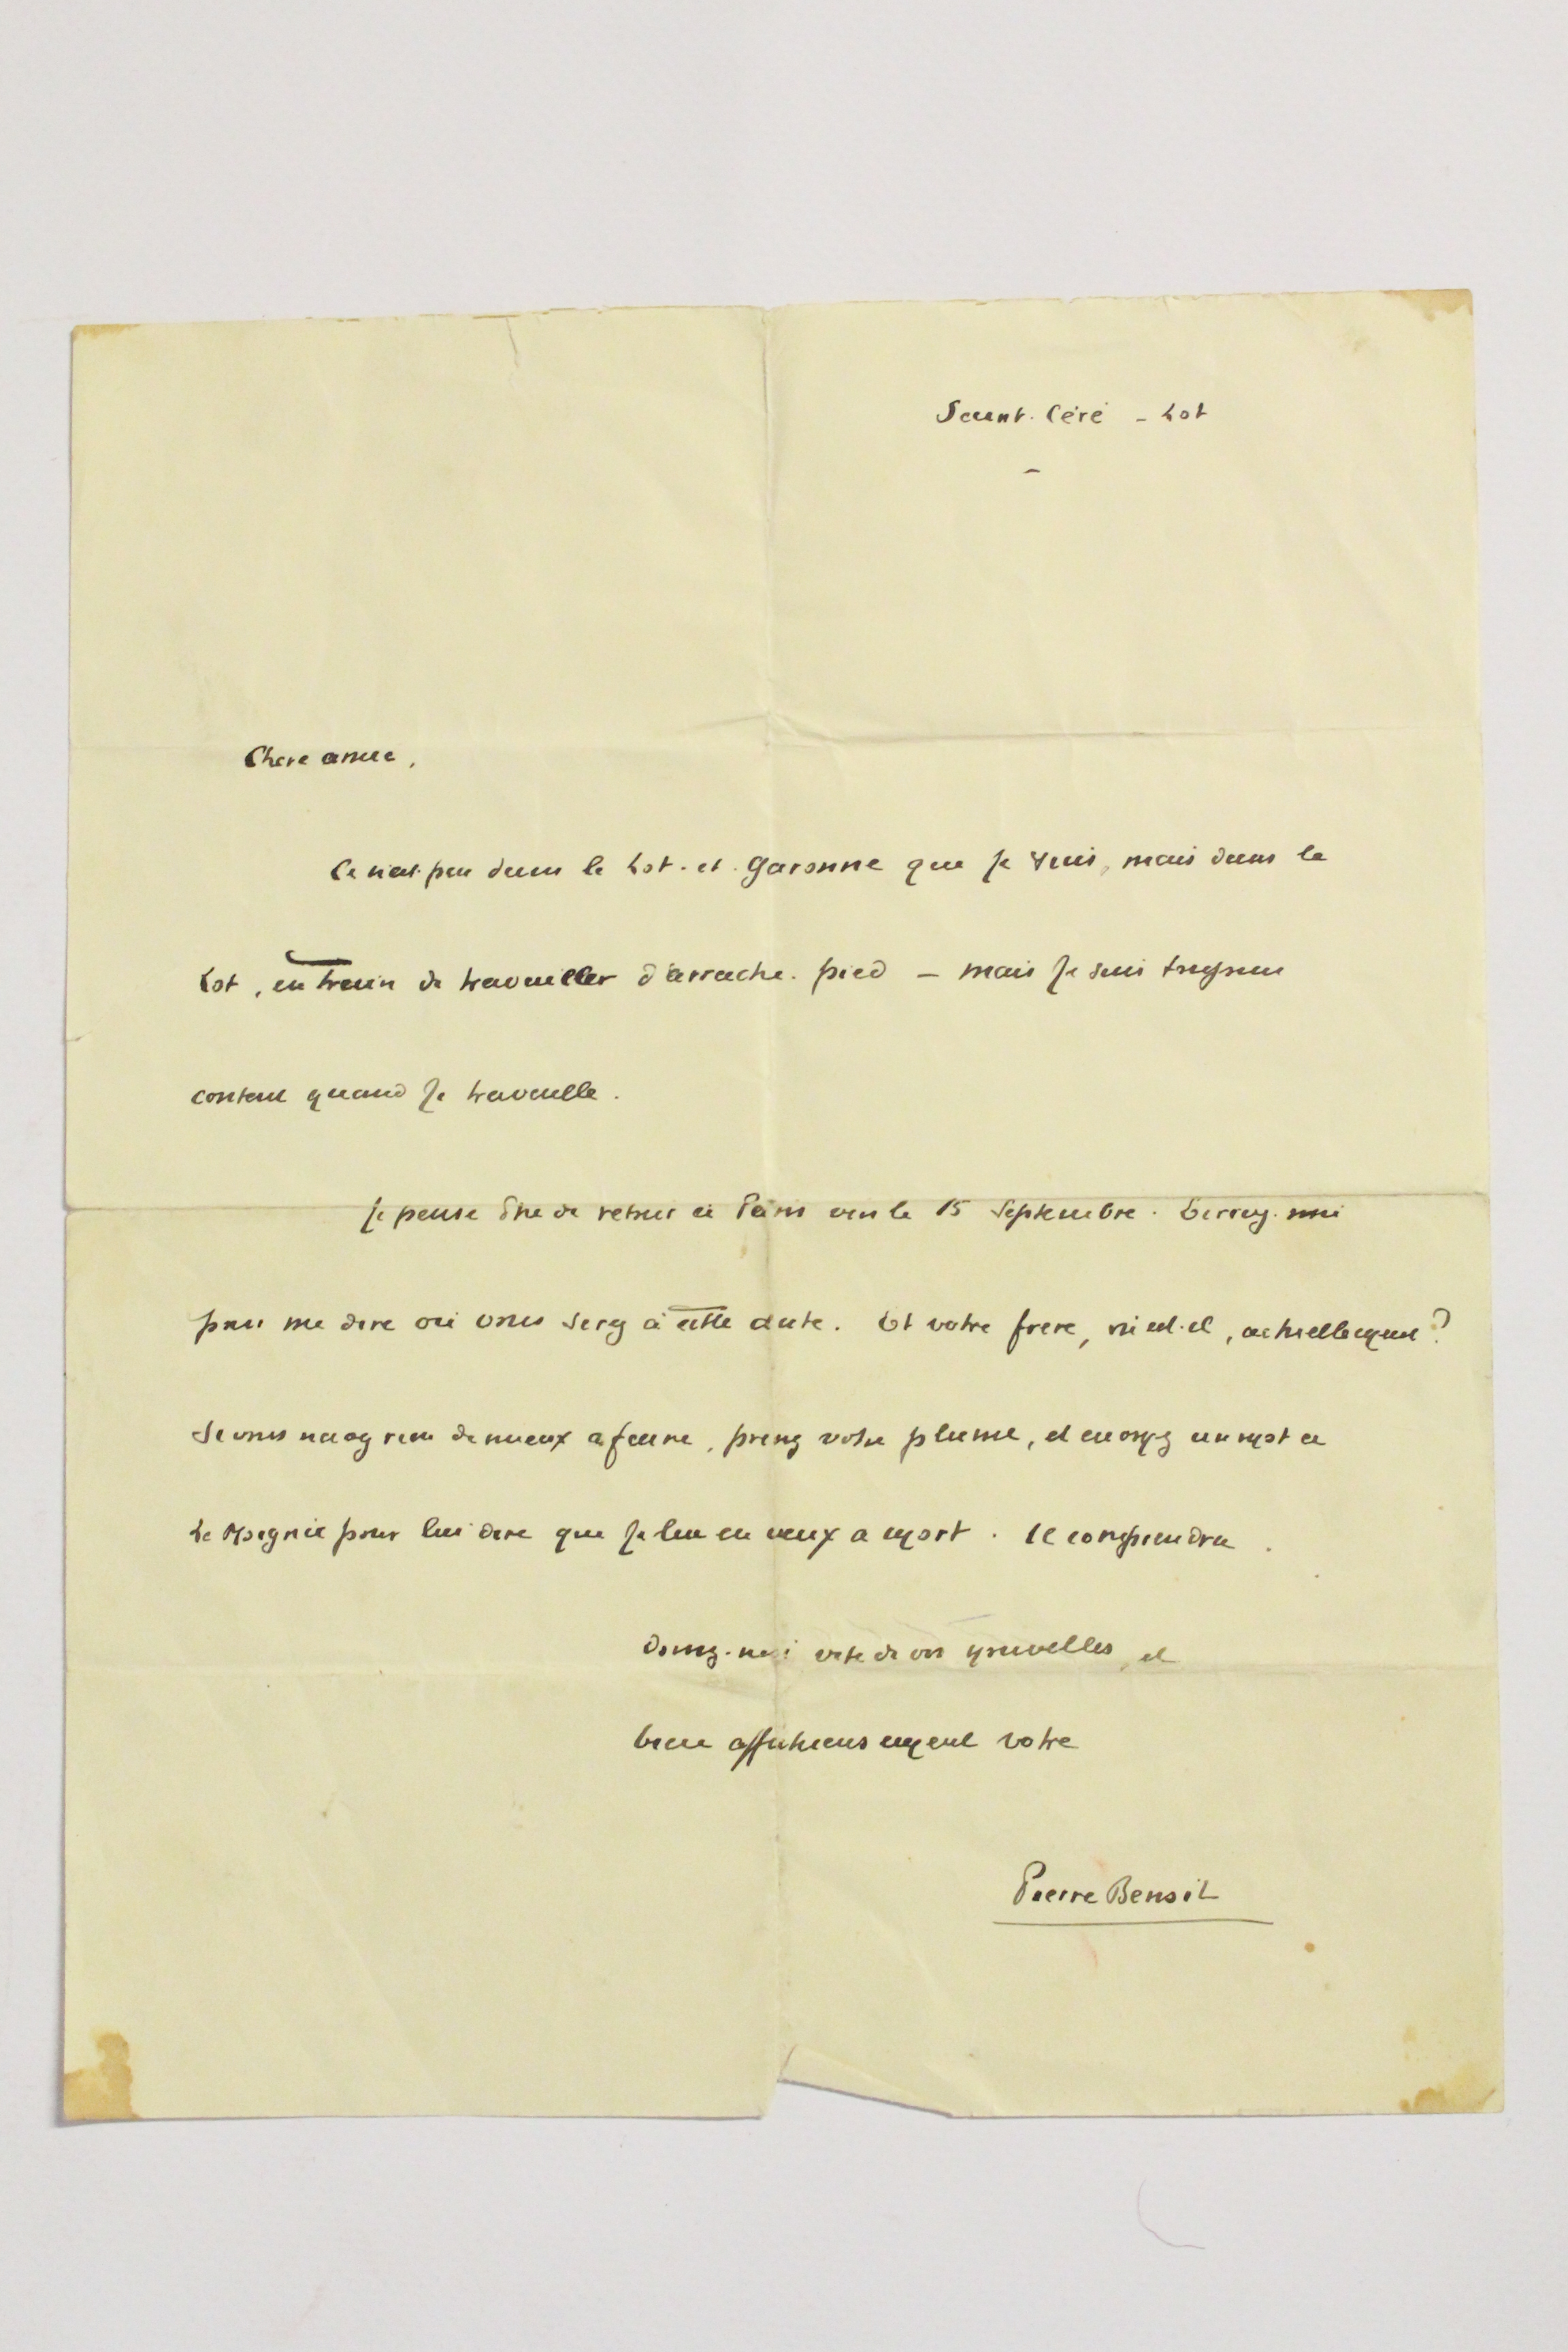 Saint-Céré - Lot
Chère amie,
Ce n'est pas dans le Lot-et-Garonne que je suis, mais dans le
Lot, en train de travailler d'arrache-pied – mais je suis toujours
content quand je travaille.
Je pense être de retour à Paris vers le 15 Septembre. Écrivez-moi
pour me dire où vous serez à cette date. Et votre frère, où est-il, actuellement ?
Si vous n'avez rien de mieux à faire, prenez votre plume, et envoyez un mot à
Le Moignie pour lui dire que je lui en veux à mort. Il comprendra.
Donnez-moi vite de vos nouvelles, et
bien affectueusement votre
Pierre Benoit